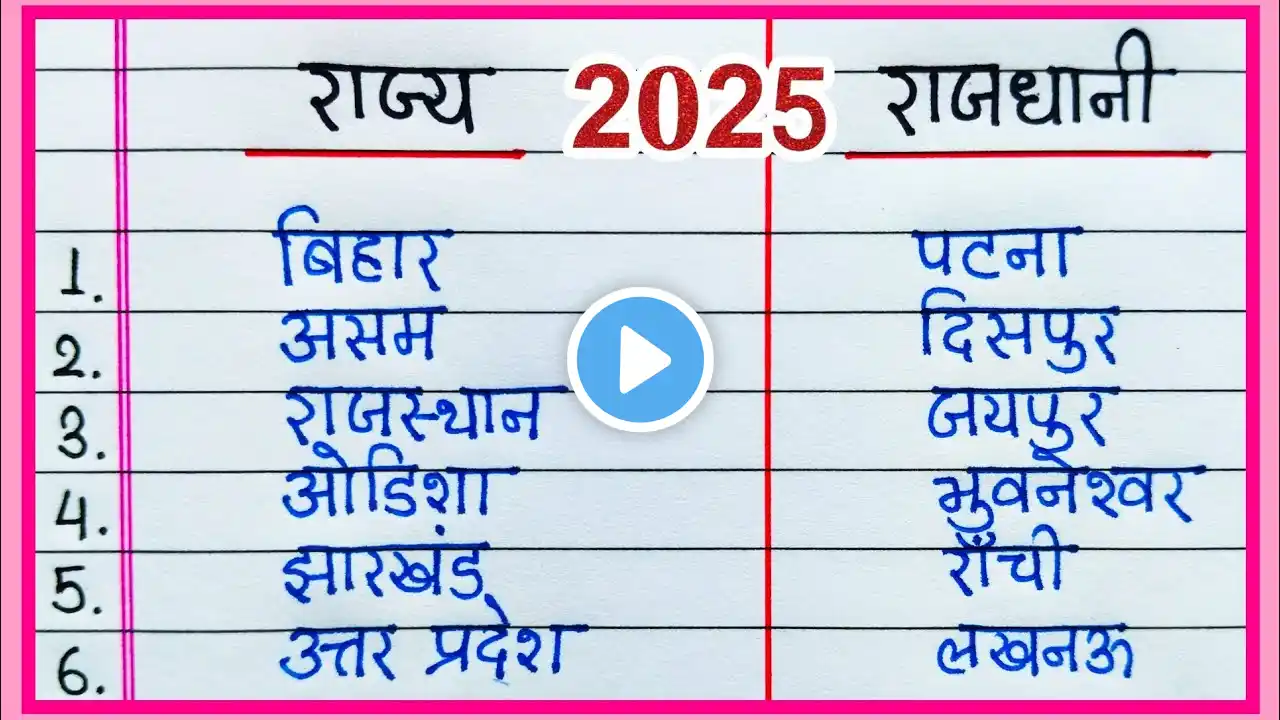 राज्य 2025 राजधानी
1. बिहार पटना
2. असम दिसपुर
3. राजस्थान जयपुर
4. ओडिशा भुवनेश्वर
5. झारखंड राँची
6. उत्तर प्रदेश लखनऊ